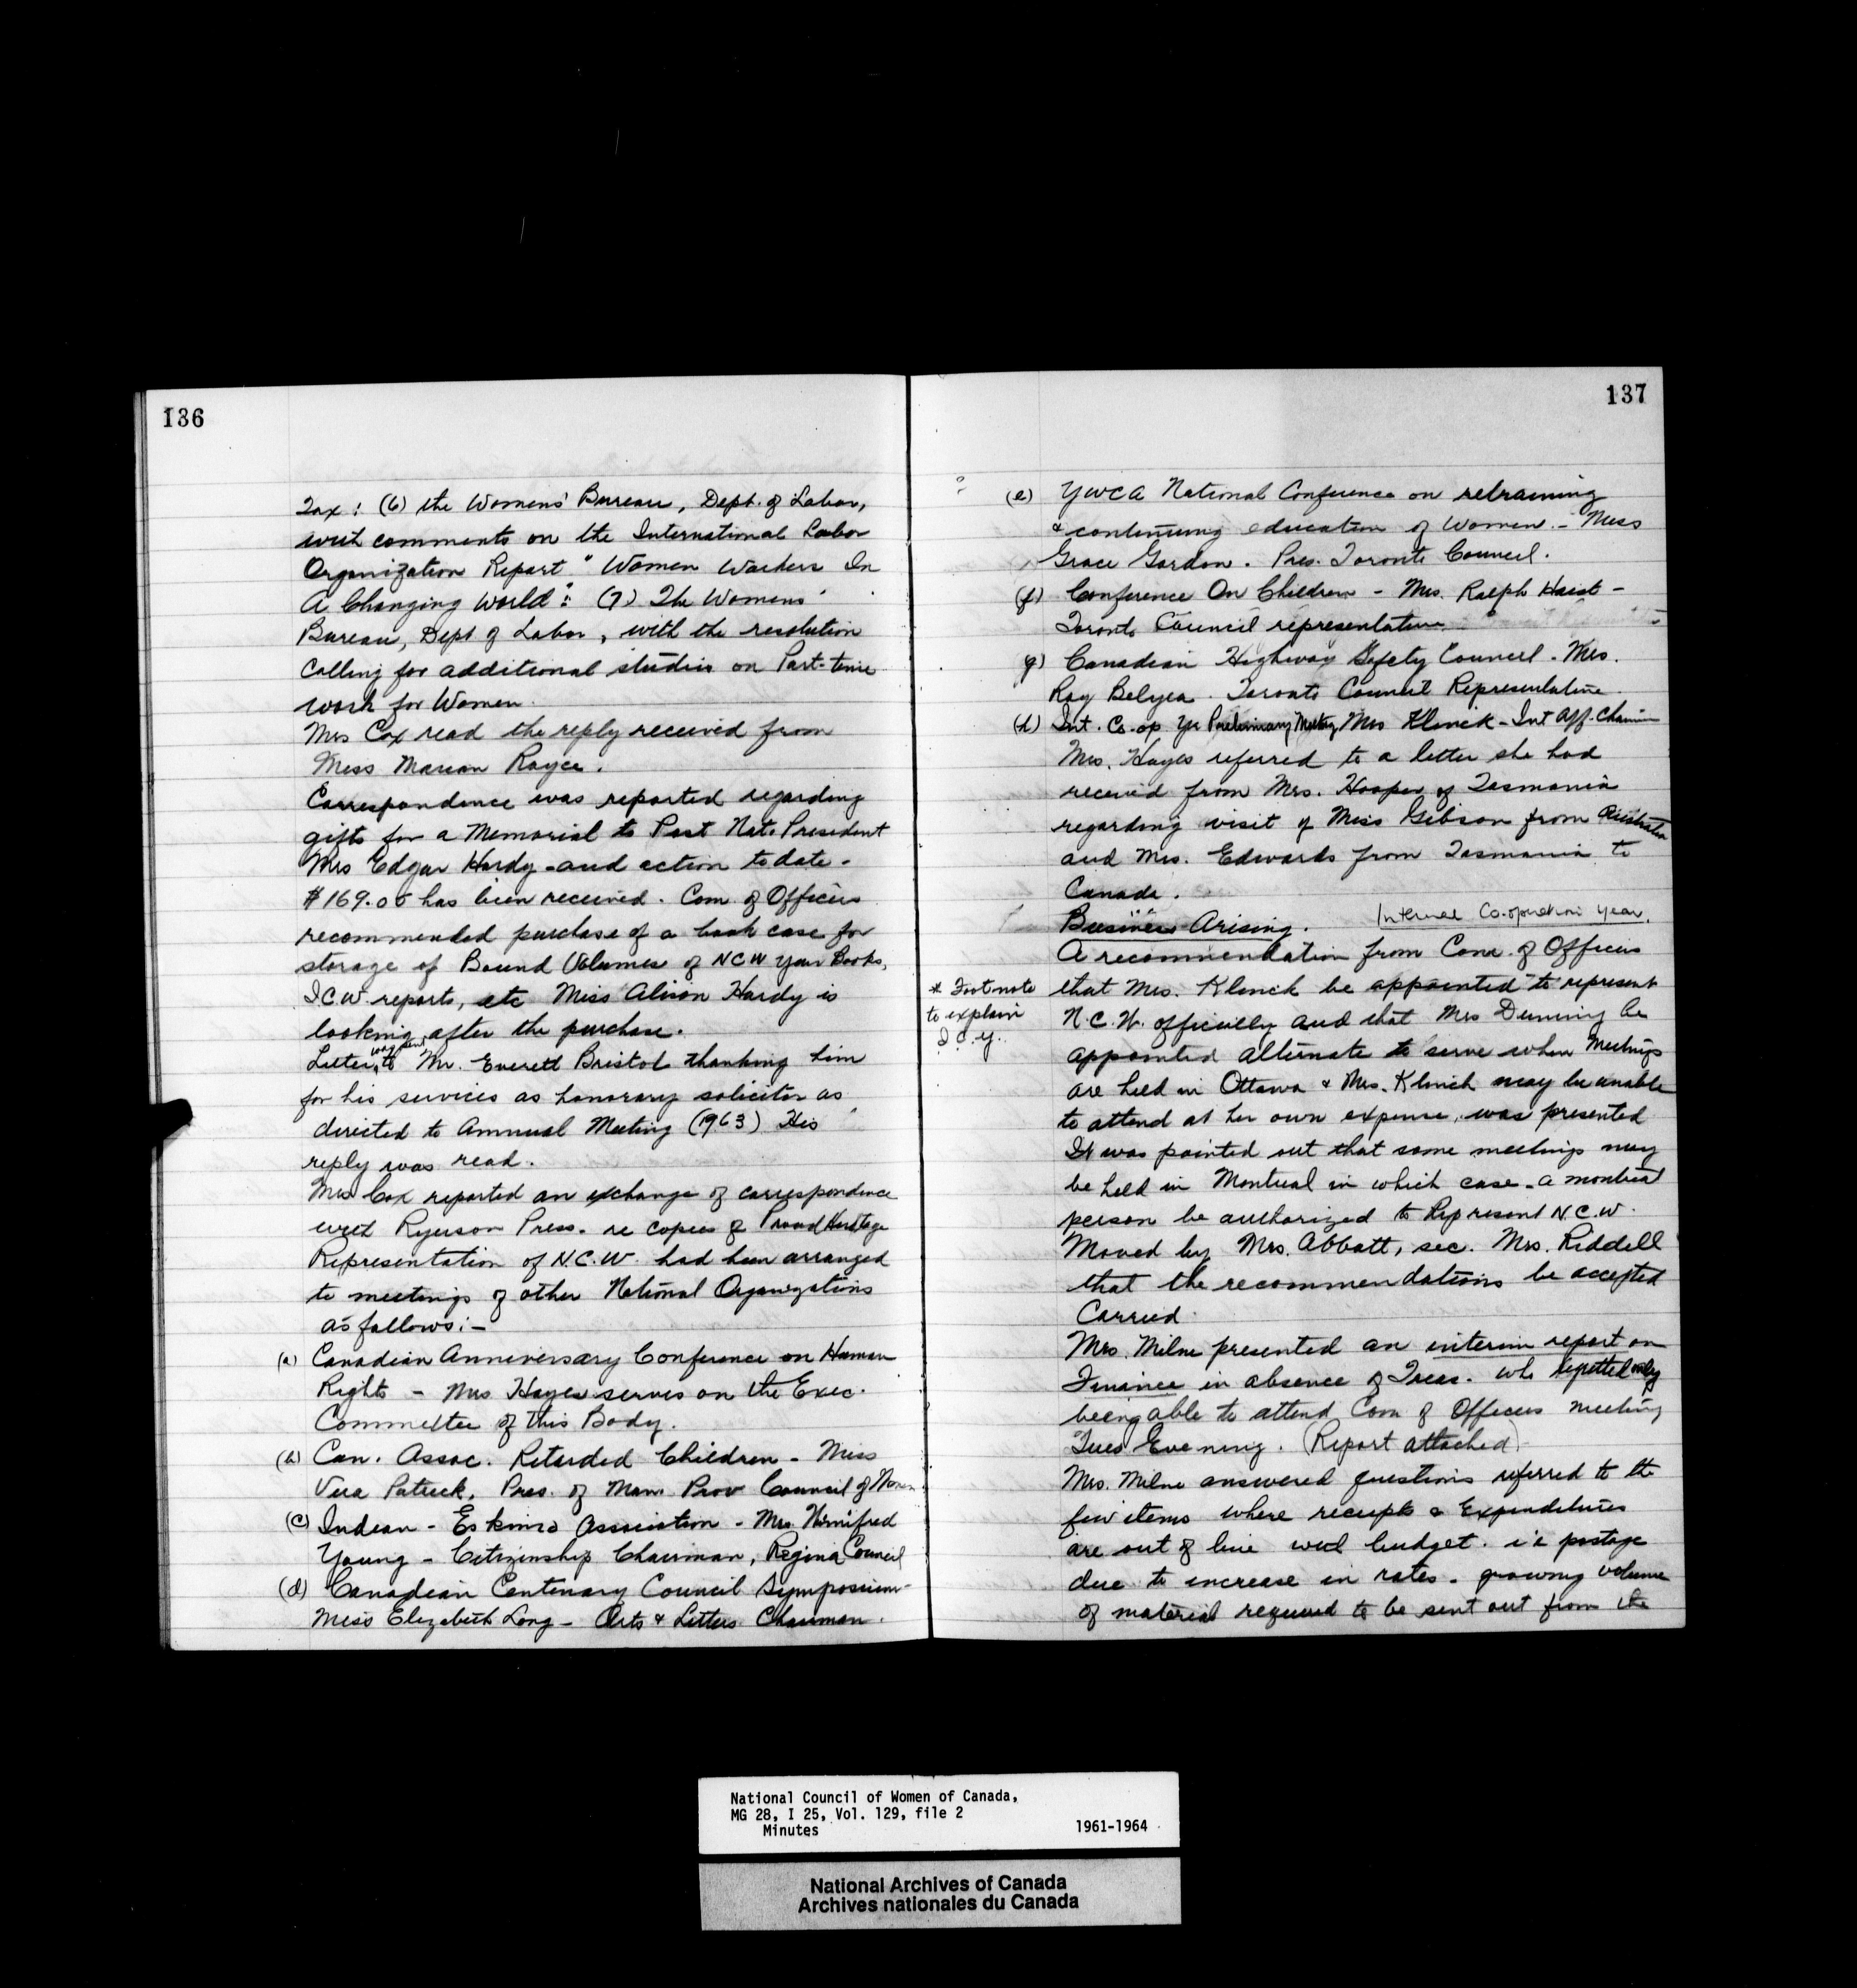 136
Tax: (6) the Womens' Bureau, Dept. of Labor,
with comments on the International Labor
Organization Report "Women Workers In
A Changing World": (7) The Womens'
Bureau, Dept of Labor, with the resolution
calling for additional studies on Part-time
work for Women.
Mrs Cox read the reply received from
Miss Marion Royce.
Correspondence was reported regarding
gifts for a Memorial to Past Nat. President
Mrs Edgar Hardy - and action to date -
$169.05 has been received. Com. of Officers
recommended purchase of a book case for
storage of Bound Volumes of NCW Year Books,
I.C.W. reports, etc Miss Alison Hardy is
looking after the purchase.
Letter was sent to Mr. Everett Bristol thanking him
for his services as honorary solicitor as
directed to Annual Meeting (1963) His
reply was read.
Mrs Cox reported an exchange of correspondence
with Ryerson Press. re copies of Proud Heritage
Representation of N.C.W. had been arranged
to meetings of other National Organizations
as follows:-
(a) Canadian Anniversary Conference on Human
Rights - Mrs Hayes serves on the Exec.
Committee of this Body.
(b) Can. Assoc. Retarded Children - Miss
Vera Patrick, Pres. of Man. Prov Council of Women
(c) Indian - Eskimo Association - Mrs Winnifred
Young - Citizenship Chairman, Regina Council
(d) Canadian Centenary Council Symposium -
Miss Elizabeth Long - Arts & Letters Chairman.
137
(e) YWCA National Conference on retraining
& continuing education of Women. - Miss
Grace Gordon. Pres. Toronto Council.
(f) Conference On Children - Mrs. Ralph Haist -
Toronto Council representative
g) Canadian Highway Safety Council. Mrs.
Ray Belyea. Toronto Council Representative.
(h) Int. Co-op. Yr Preliminary Meeting, Mrs Klinck - Int Aff. Chairm
Mrs. Hayes referred to a letter she had
received from Mrs. Hooper of Tasmania
regarding visit of Miss Gibson from Australia
and Mrs. Edwards from Tasmania to
Canada.
Business Arising. Internal Co-operation Year.
A recommendation from Com. of Officers
* Footnote
to explain
I.C.Y.
that Mrs. Klinck be appointed to represent
N.C.W. officially and that Mrs Dunning be
appointed alternate to serve when Meetings
are held in Ottawa & Mrs. Klinck may be unable
to attend at her own expense, was presented
It was pointed out that some meetings may
be held in Montreal in which case - a montreal
person be authorized to Represent N.C.W.
Moved by Mrs. Abbott, sec. Mrs. Riddell
that the recommendations be accepted
Carried.
Mrs. Milne presented an interim report on
Finance in absence of Treas. who regretted only
being able to attend Com of Officers meeting
Tues Evening. (Report attached)
Mrs. Milne answered questions referred to the
few items where receipts & Expenditures
are out of line with budget. i.e postage
due to increase in rates - growing volume
of material required to be sent out from the
National Council of Women of Canada,
MG 28, I 25, Vol. 129, file 2
Minutes 1961-1964
National Archives of Canada
Archives nationales du Canada